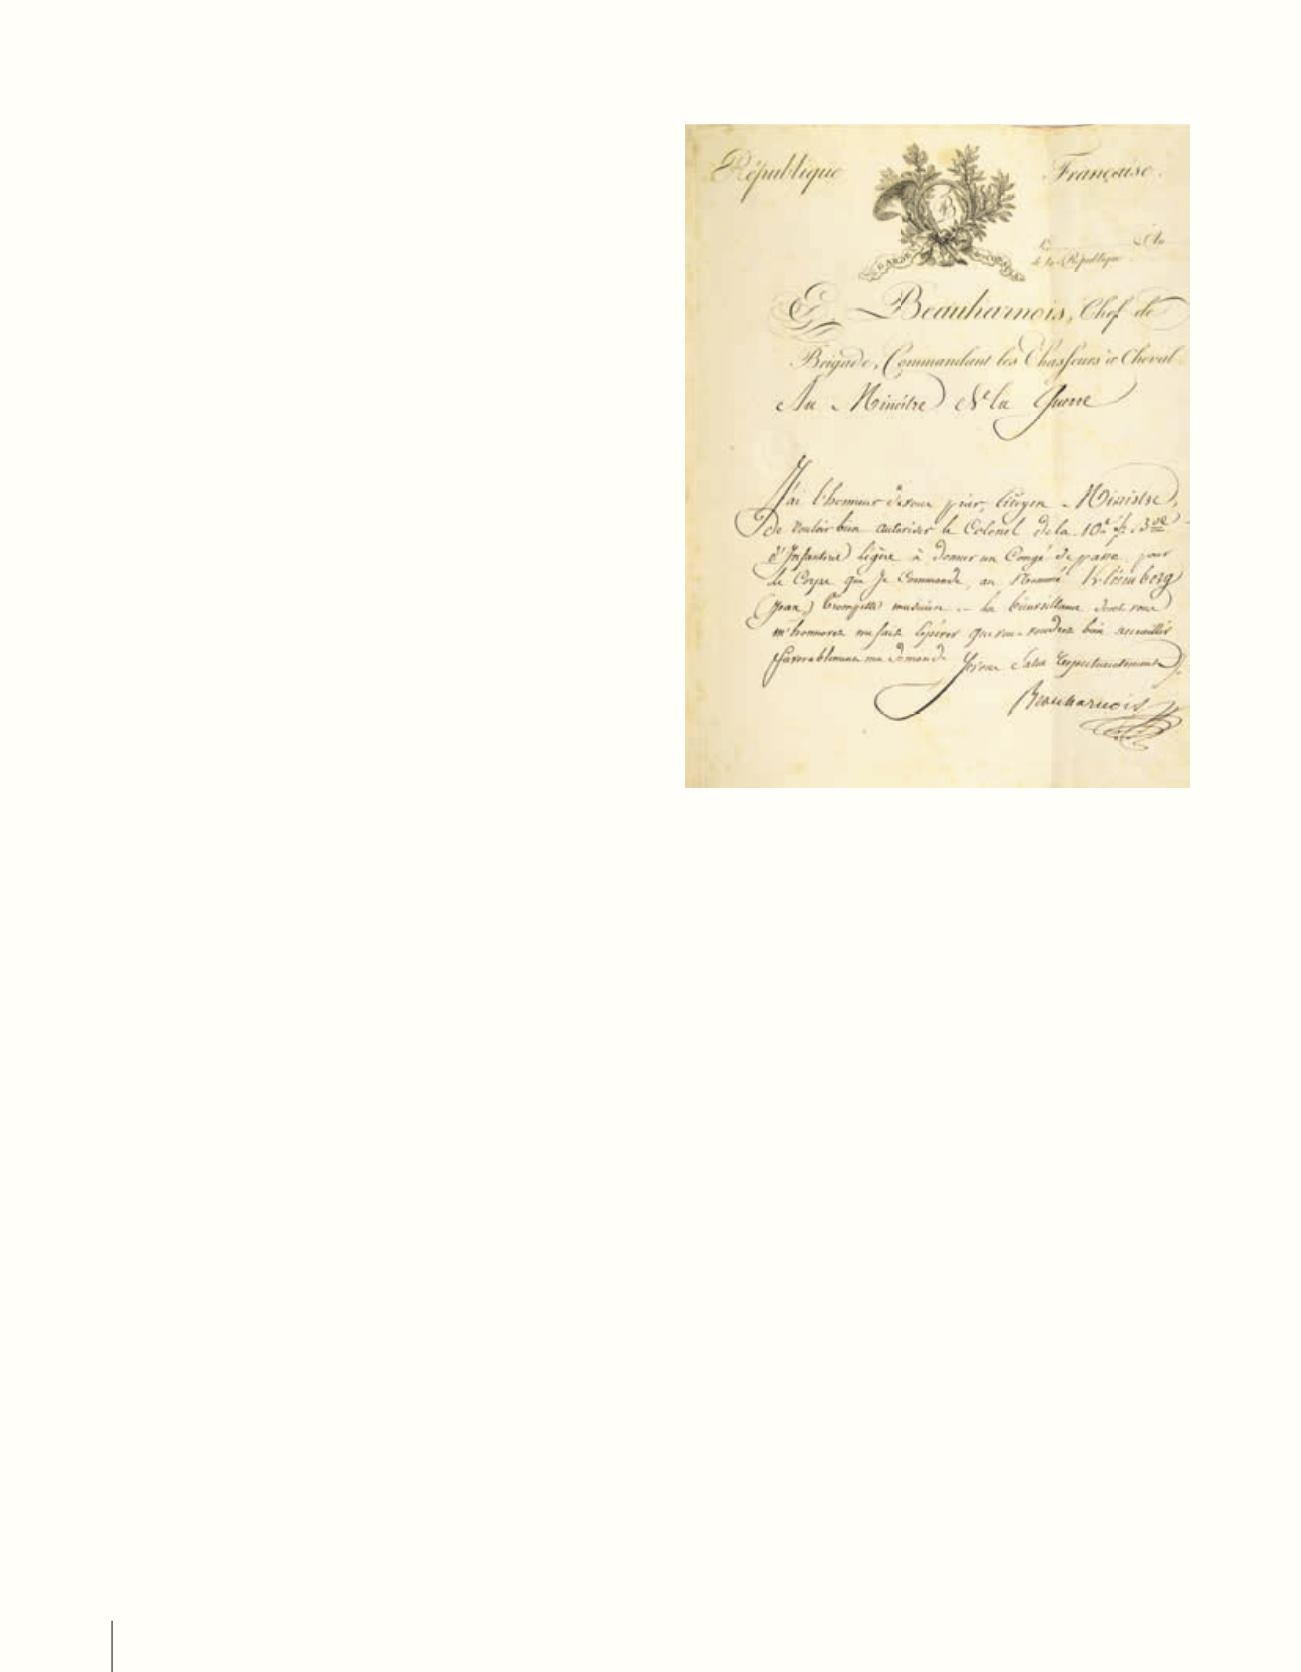 République Française.
B
GARDE DES CONSULS
Le An
de la République
E Beauharnois, Chef de
Brigade, Commandant les Chasseurs à Cheval
Au Ministre de la Guerre
J'ai l'honneur de vous prier, Citoyen Ministre,
de vouloir bien autoriser le Colonel de la 10e
d'Infanterie légère à donner un Congé de passe pour
le Corps que je Commande, au Nommé Kleimberg
(Jean,) trompette musicien la bienveillance dont vous
m'honorez me fait espérer que vous voudrez bien accueillir
favorablement ma demande Salue respectueusement
Beauharnois